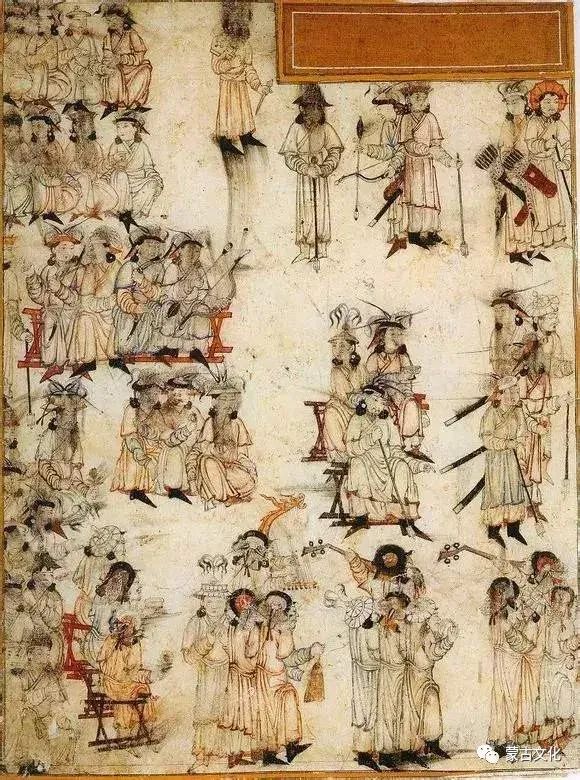 蒙古文化